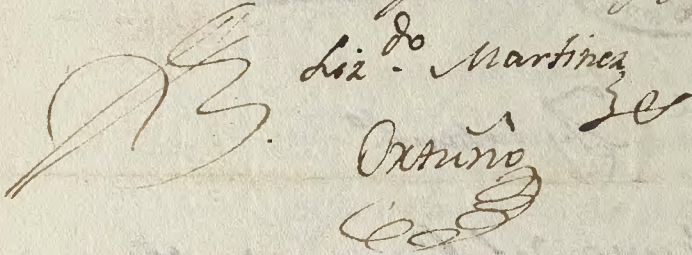 Lizdo. Martinez
Ortuño